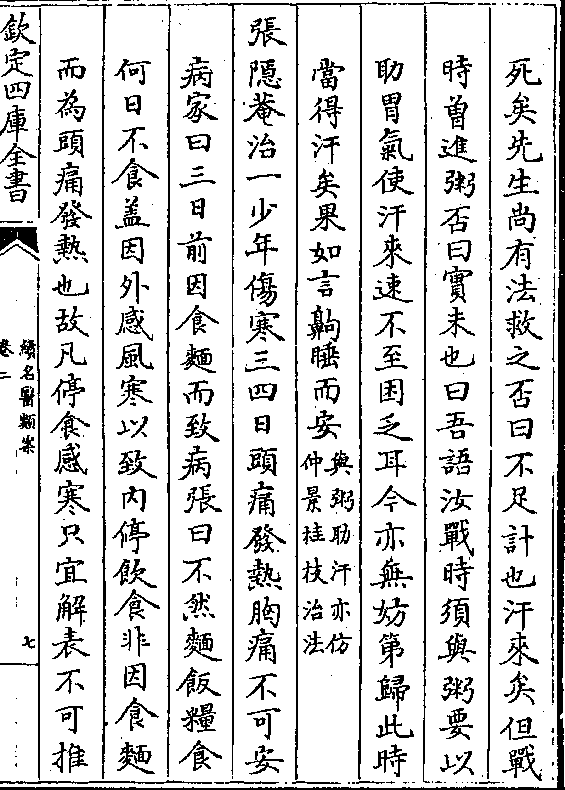 死矣先生尚有法救之否曰不足計也汗來矣但戰
時曽進粥否曰實未也曰吾語汝戰時須與粥要以
助胃氣使汗來速不至困乏耳今亦無妨第歸此時
當得汗矣果如言齁睡而安與粥助汗亦仿
仲景桂枝治法
張隱菴治一少年傷寒三四日頭痛發熱胸痛不可安
病家曰三日前因食麵而致病張曰不然麵飯糧食
何日不食盖因外感風寒以致内停飲食非因食麵
而為頭痛發熱也故凡停食感寒只宜解表不可推
欽定四庫全書
續名醫類案
卷二
七